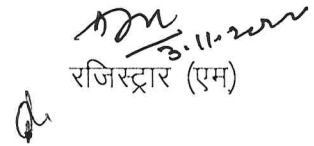 3.11.2022
रजिस्ट्रार (एम)